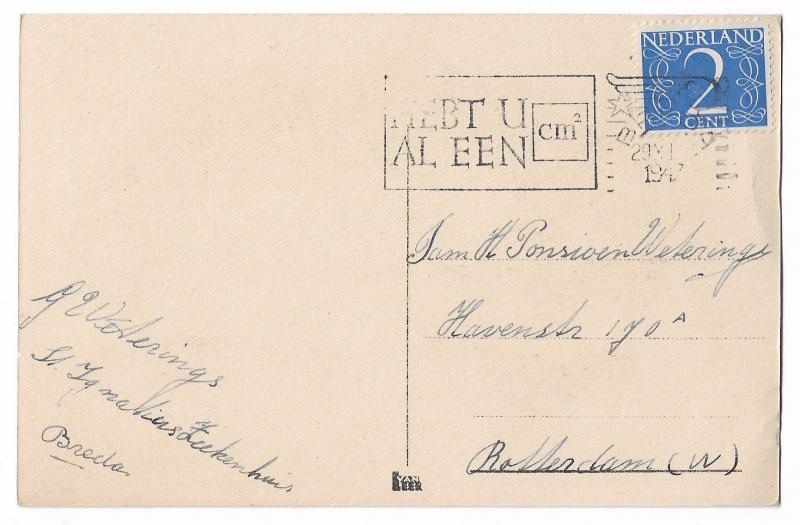 NEDERLAND
2
CENT
HEBT U
AL EEN
cm²
194
Fam H Ponsioen Weterings
Havenstr 170 A
Rotterdam (W)
G Weterings
St Ignatius Ziekenhuis
Breda